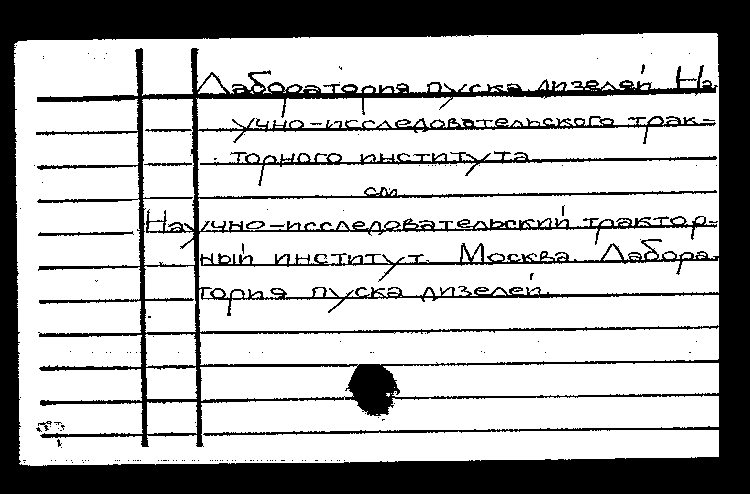 Лаборатория пуска дизелей На
учно-исследовательского трак-
торного института
см
Научно-исследовательский трактор-
ный институт. Москва. Лабора-
тория пуска дизелей.